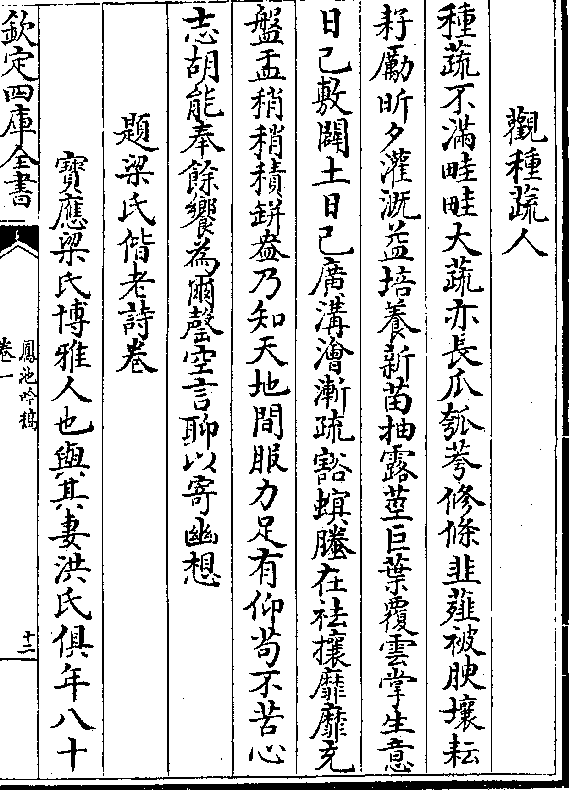 觀種蔬人
種蔬不滿畦畦大蔬亦長爪瓠蕚修條韭薤被腴壤耘
耔勵昕夕灌溉益培養新苗抽露莖巨葉覆雲掌生意
日已敷闢土日已廣溝澮漸疏豁螟螣在祛攘靡靡充
盤盂稍稍積缾盎乃知天地間服力足有仰茍不苦心
志胡能奉餘饗為爾罄空言聊以寄幽想
題梁氏偕老詩卷
寶應梁氏博雅人也與其妻洪氏俱年八十
欽定四庫全書
鳳池吟稿
卷一
十二